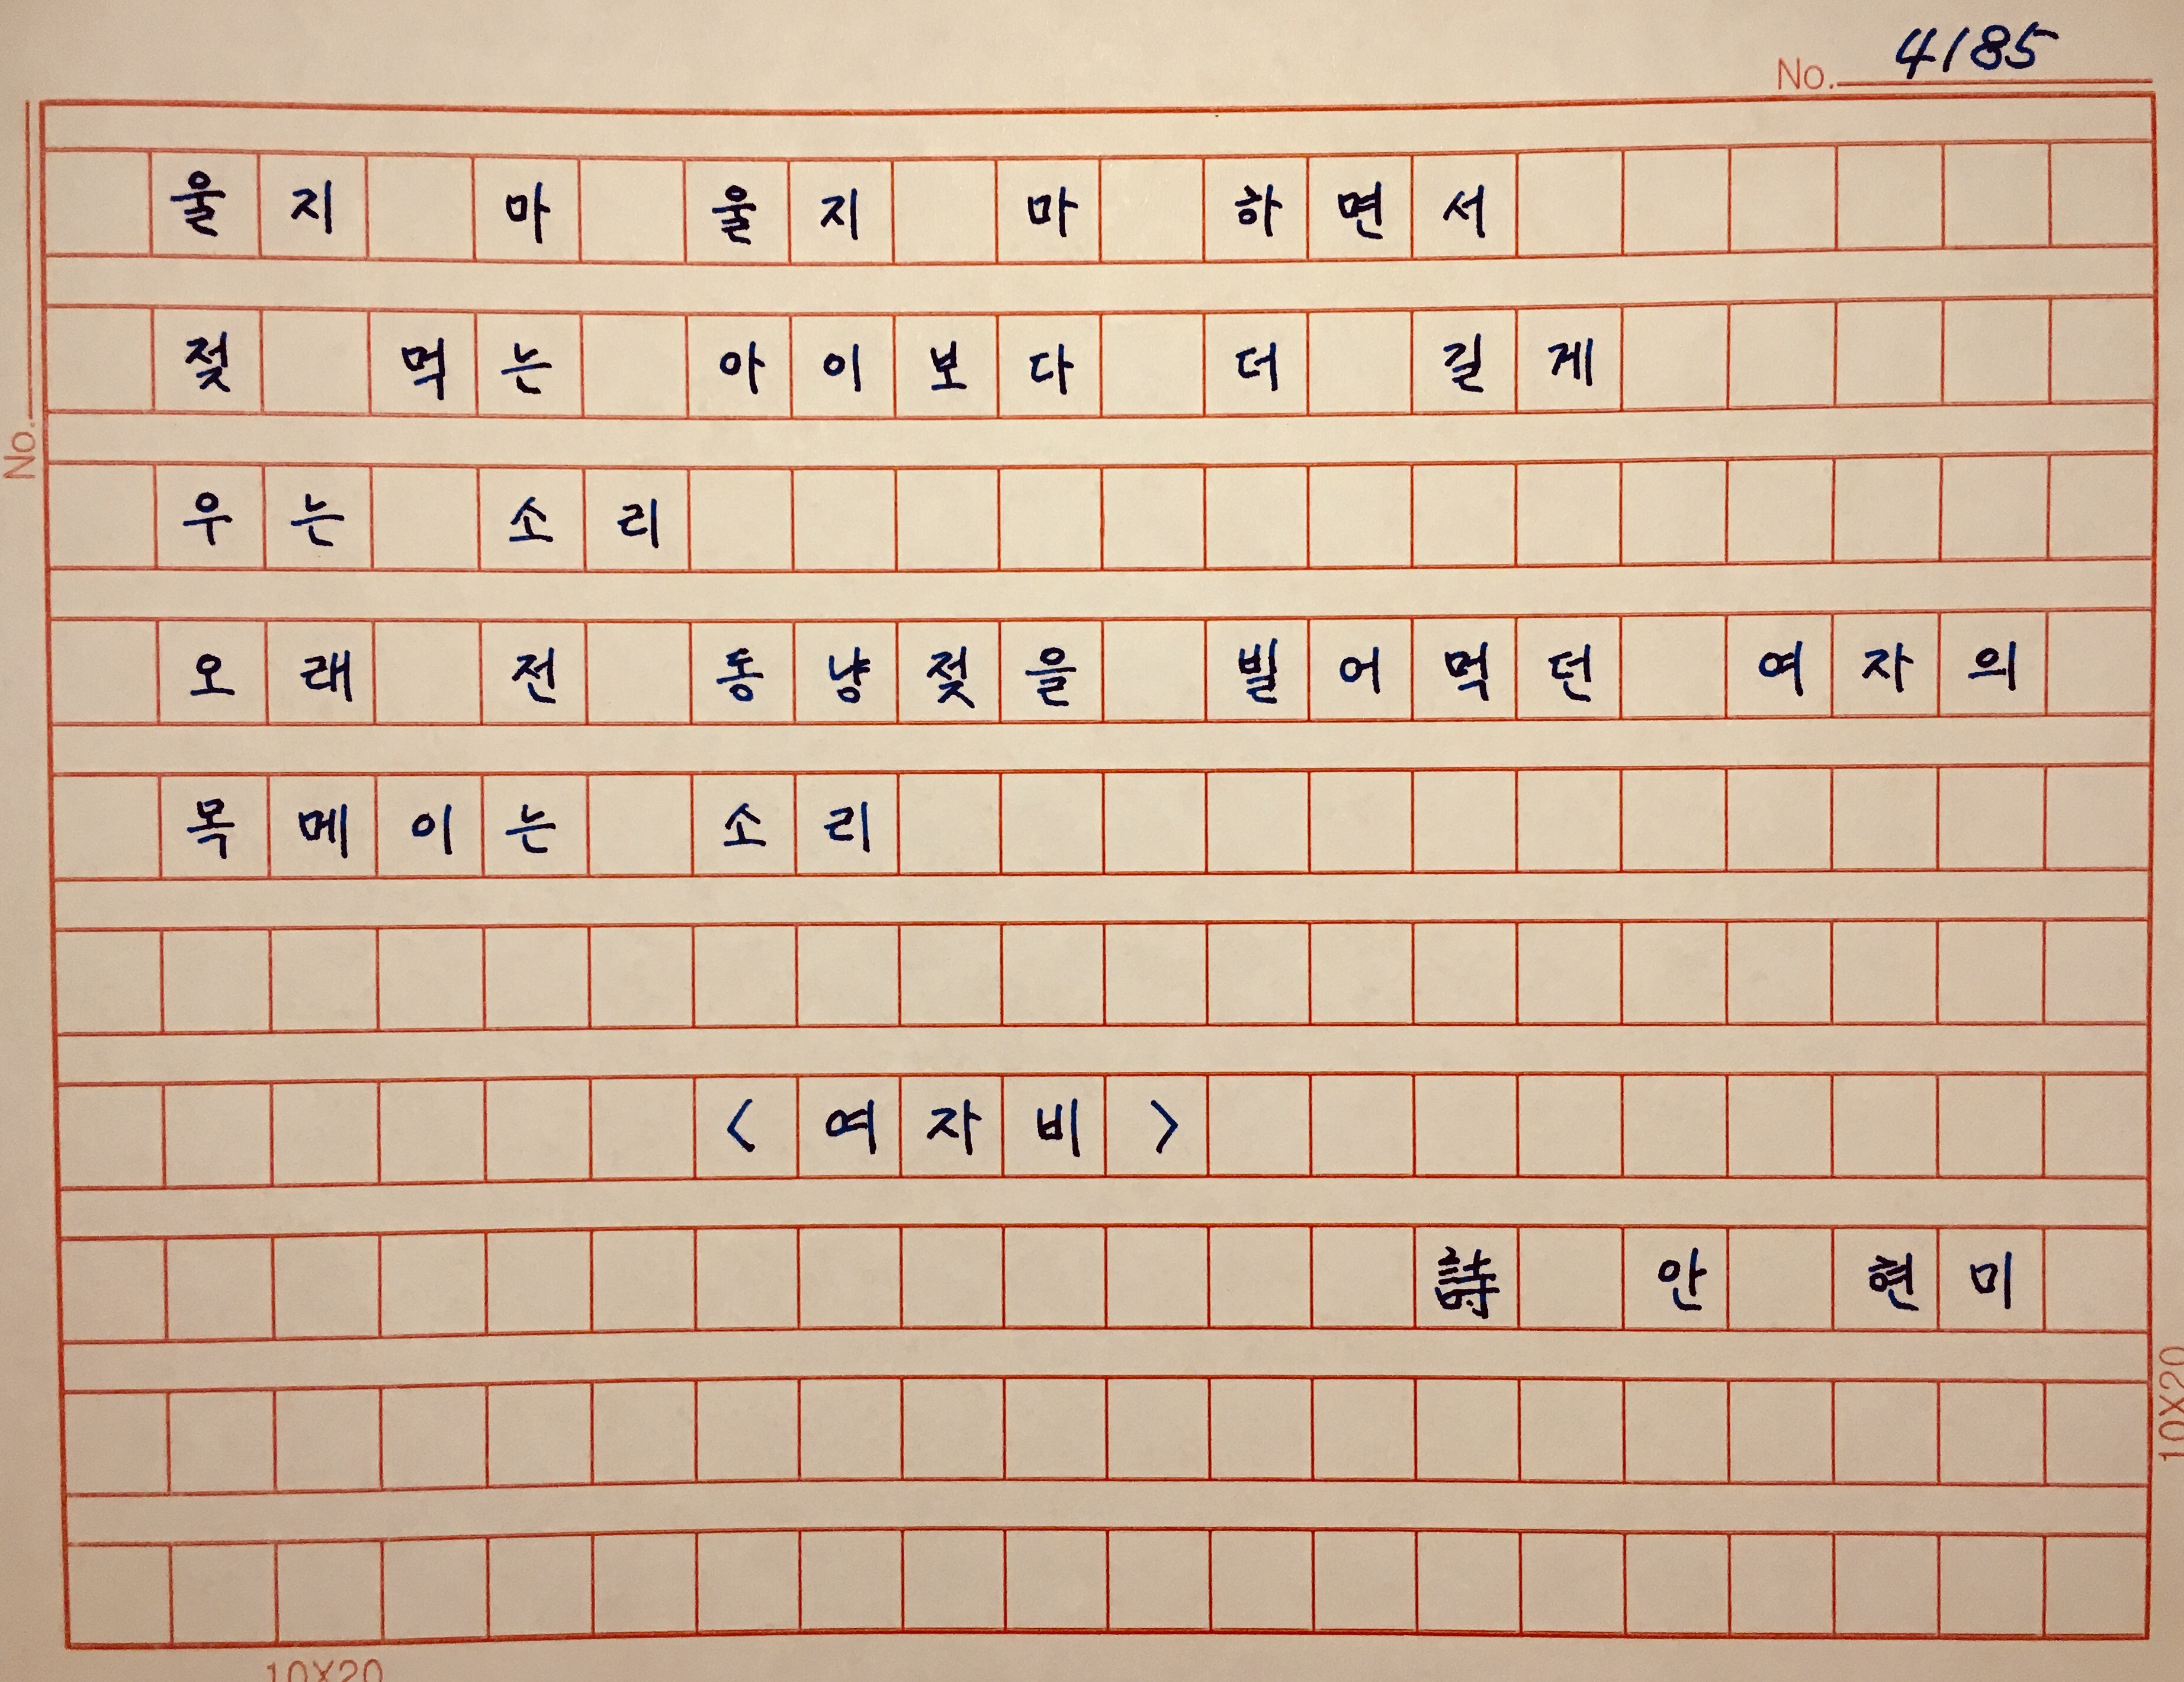 No. 4185
울지 마 울지 마 하면서
젖 먹는 아이보다 더 길게
우는 소리
오래 전 동냥젖을 빌어먹던 여자의
목메이는 소리
<여자비>
詩 안 현미
No.
10X20
10X20